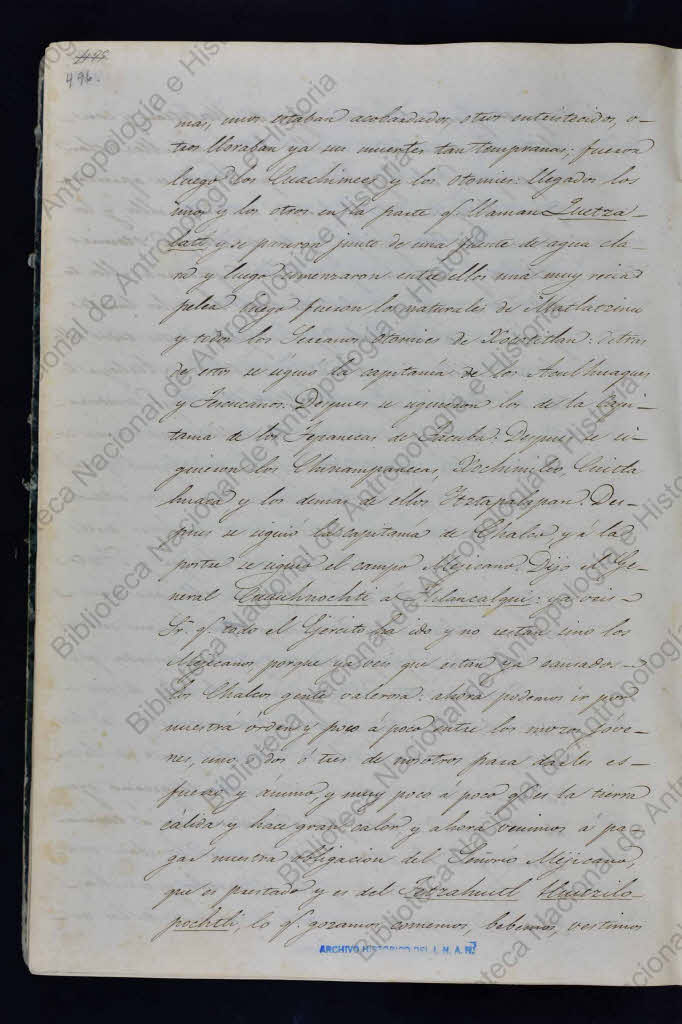 495
496.
mas, unos estaban acobardados, otros entristecidos, o-
tros lloraban ya sus muertes tan tempranas; fueron
luego los Cuachimees y los otomies: llegados los
unos y los otros en la parte q. llaman Quetza-
latl y se pararon junto de una fuente de agua cla-
ra y luego comenzaron entre ellos una muy recia
pelea luego fueron los naturales de Matlatzinco
y todos los Serranos otomies de Xocotitlan: detras
de estos se siguio la capitanía de los Aculhuaques
y Tescucanos. Despues se siguieron los de la Capi-
tania de los Tepanecas de Tacuba: Despues se si-
guieron los Chinampanecas, Xochimilco, Cuitla
huaca y los demas de ellos Yztapalapan. Des-
pues se siguió la capitanía de Chalco, y á la
postre se siguio el campo Mejicano. Dijo el Ge-
neral Cuauhnochtli a Tilancalqui: ya veis
Sr. q. todo el Ejército ha ido y no restan sino los
Mejicanos, porque ya veis que estan ya cansados
los Chalcos gente valerosa: ahora podemos ir por
nuestra órden y poco á poco entre los mozos jóve-
nes, uno, o dos ó tres de nosotros para darles es-
fuerzo y animo, y muy poco a poco q. es la tierra
cálida y hace gran calor, y ahora venimos á pa-
gar nuestra obligacion del Señorio Mejicano,
que es prestado y es del Tetzahuitl Huitzilo-
pochtli, lo q. gozamos, comemos, bebemos, vestimos
ARCHIVO HISTORICO DEL I. N. A. H.
Biblioteca Nacional de Antropología e Historia